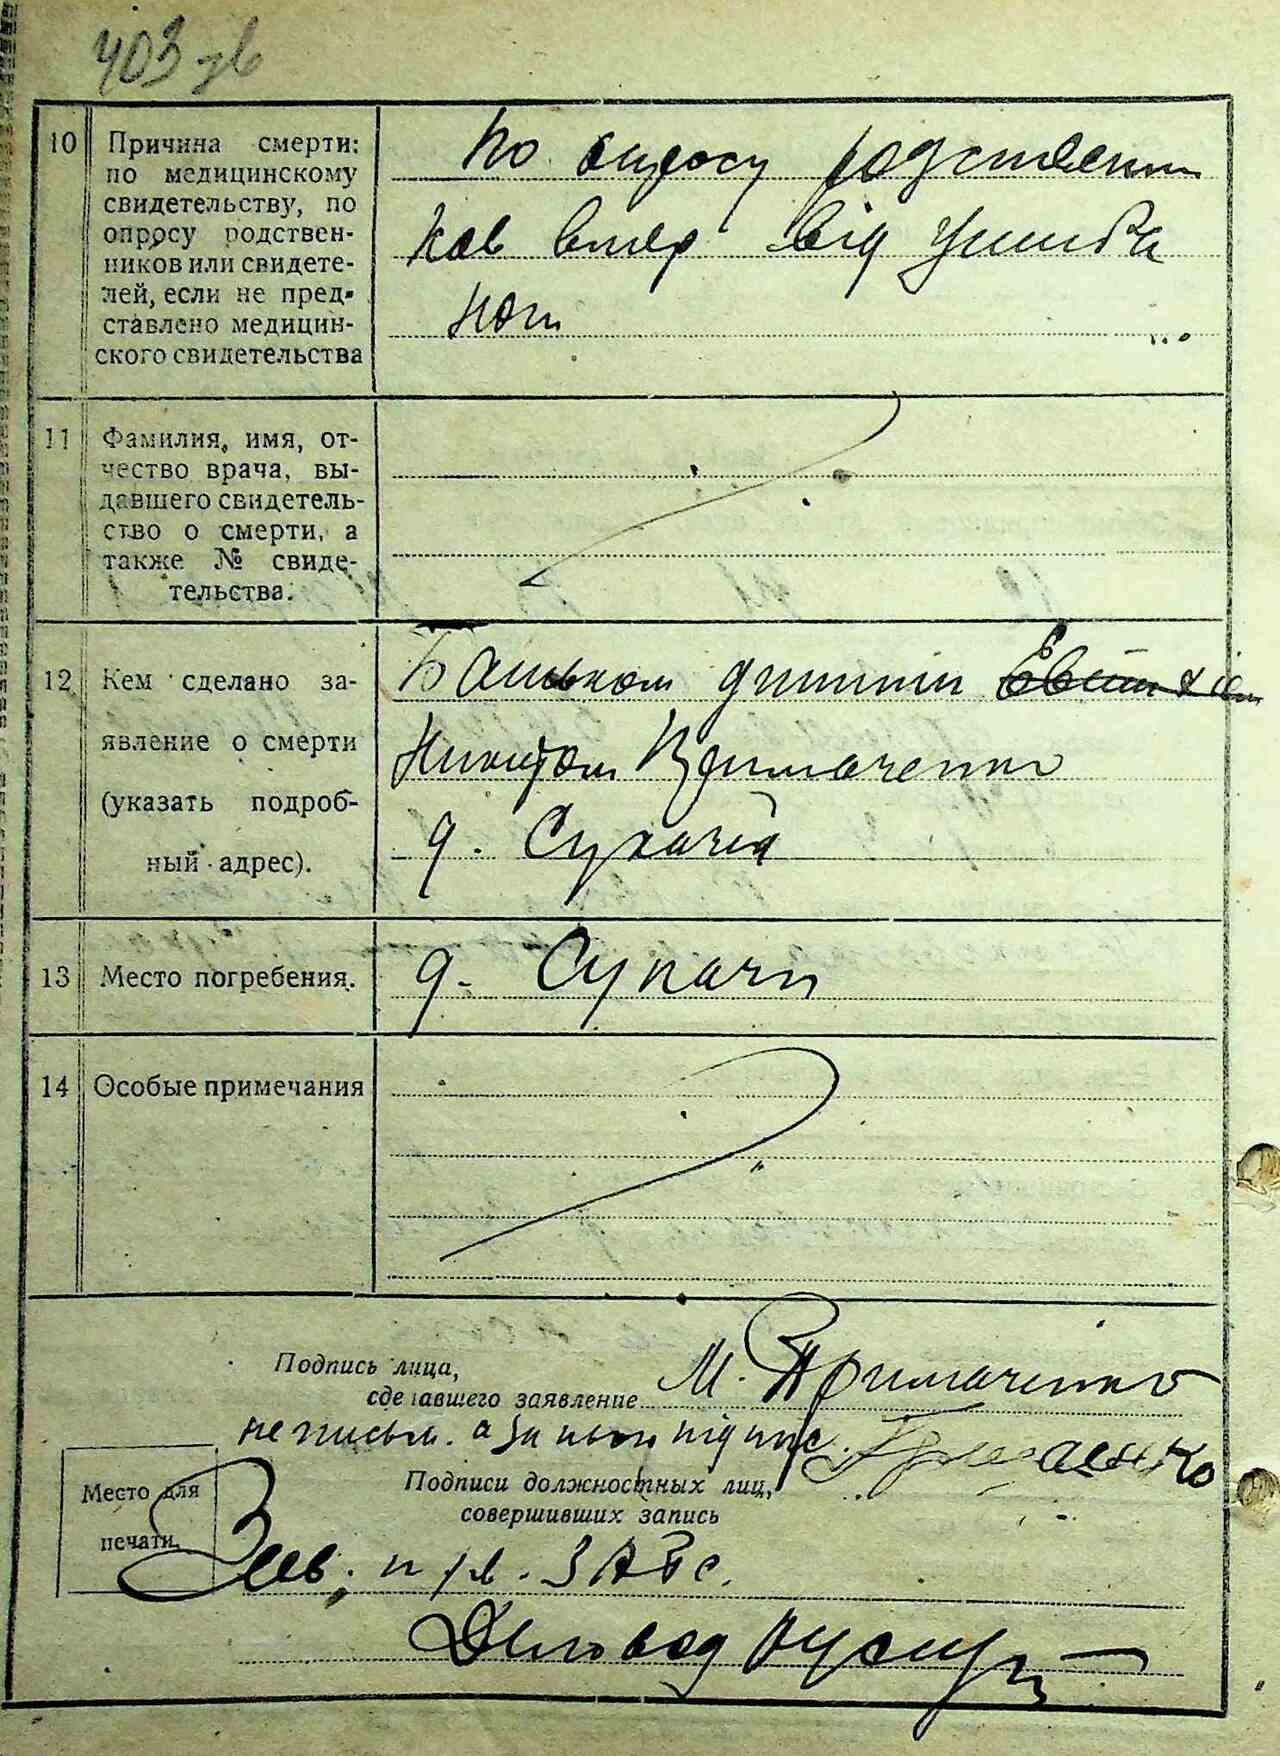 403 зв
10 Причина смерти:
по медицинскому
свидетельству, по
опросу родствен-
ников или свидете-
лей, если не пред-
ставлено медицин-
ского свидетельства
По опросу родственни
ков вмер від
11 Фамилия, имя, от-
чество врача, вы-
давшего свидетель-
ство о смерти, а
также № свиде-
тельства.
12 Кем сделано за-
явление о смерти
(указать подроб-
ный адрес).
Батьком
Примаченко
д. Сукачи
13 Место погребения.
д. Сукачи
14 Особые примечания
Подпись лица,
сделавшего заявление М. Примаченко
не письм. а за него підпис.
Подписи должностных лиц,
совершивших запись
Место для
печати.
Зав. п/в. ЗАГС.
Деловод